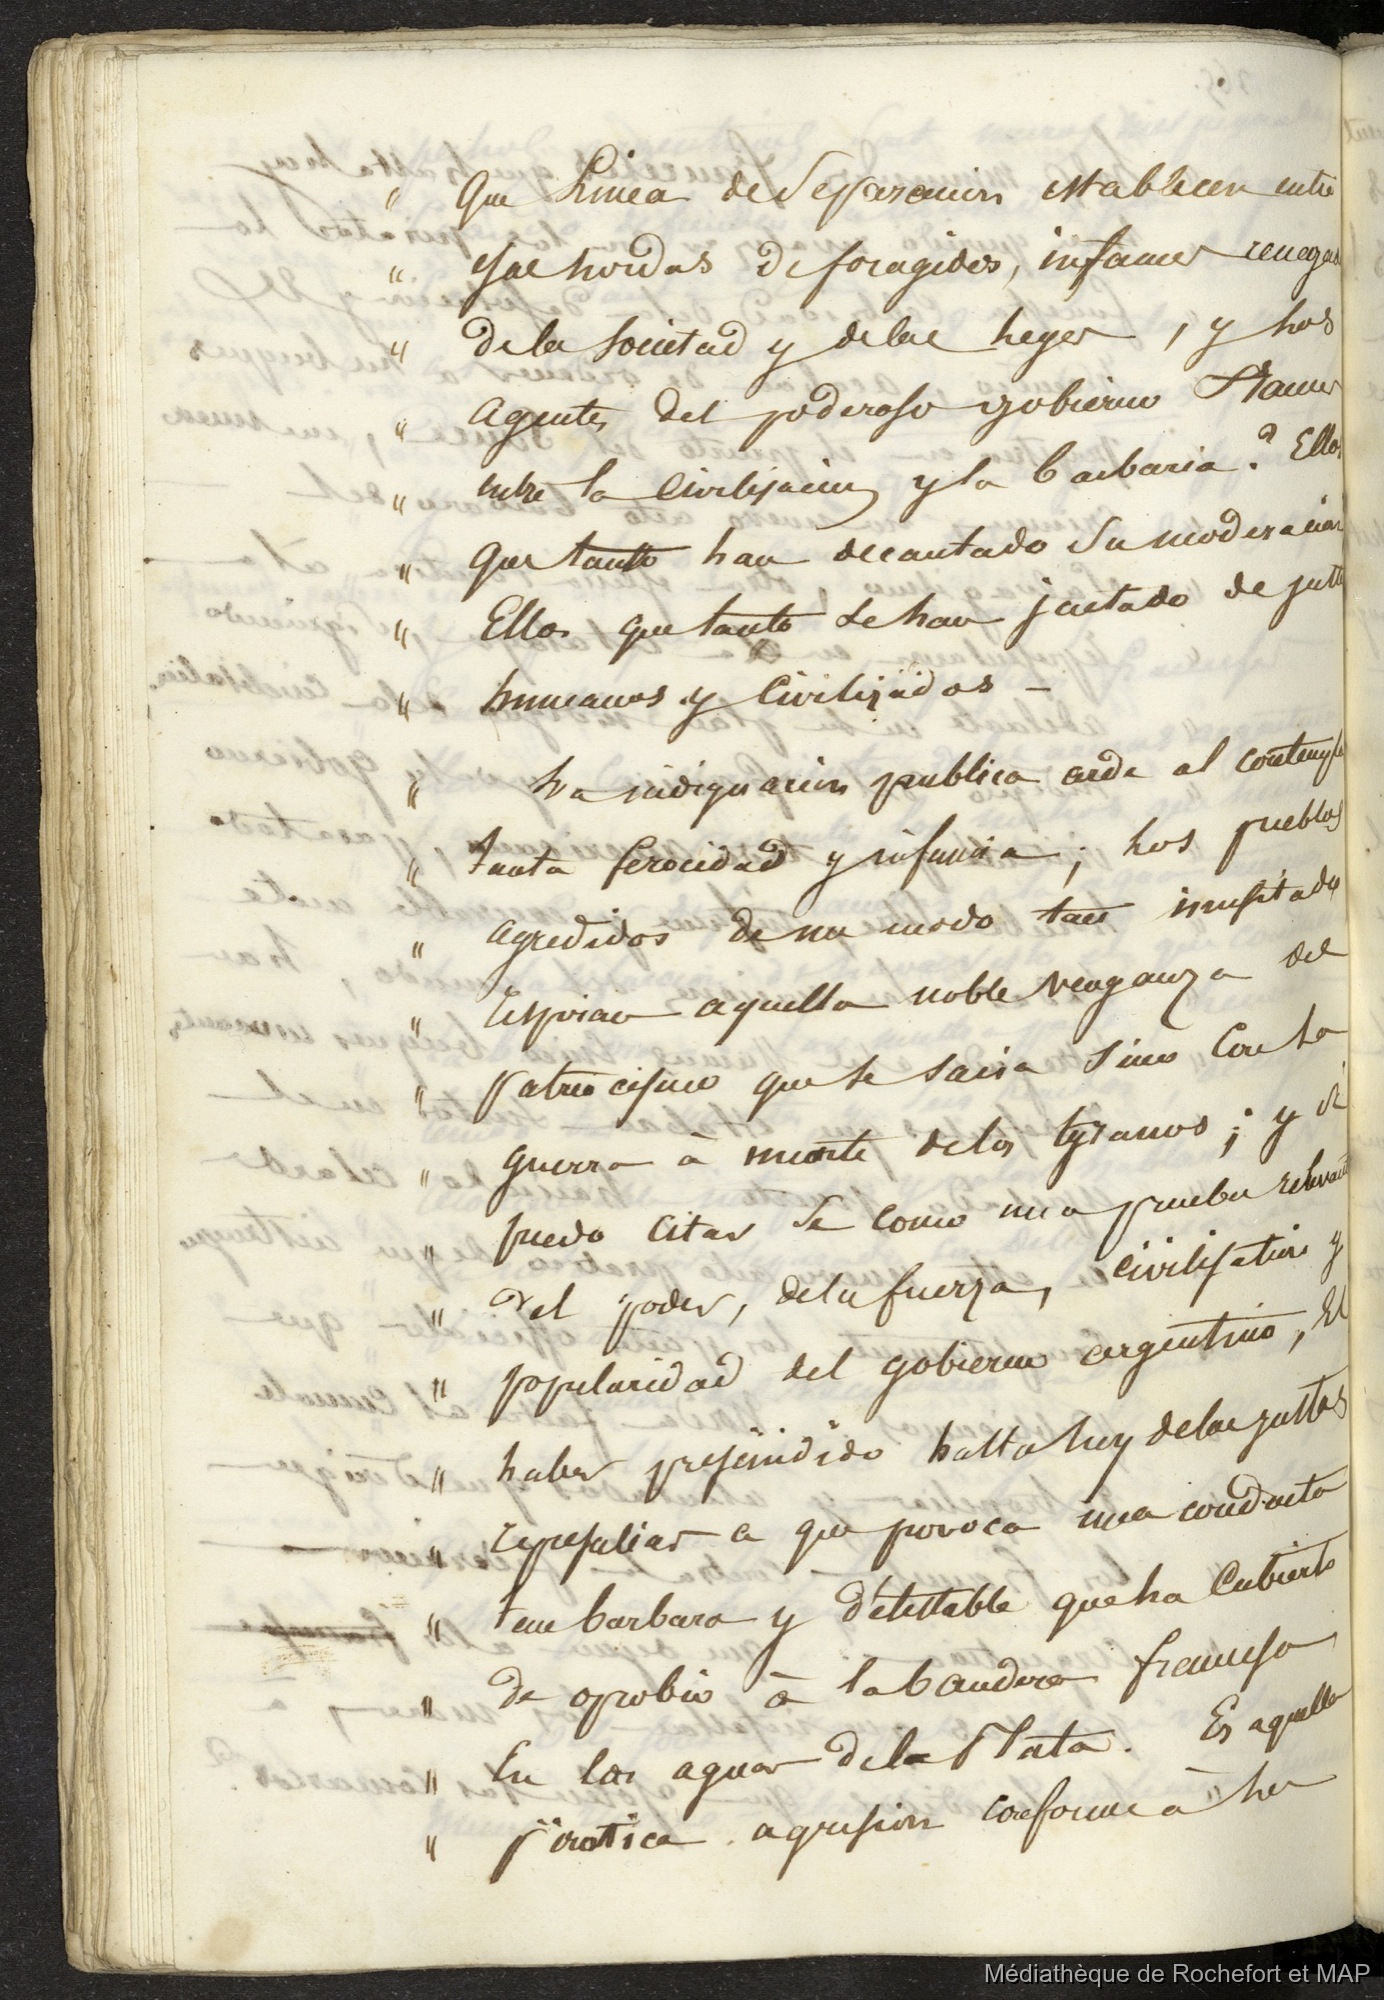 " Que Linea de Separacion establecen entre
" esas hordas de foragidos, infames renegad
" de la Societad y de las leyes, y los
" agentes del poderoso gobierno Frances
" entre la Civilisacion y la barbaria? Ellos
" que tanto han decantado Su moderacion
" Ellos que tanto se han jactado de justos
" humanos y Civilizados —
" La indignacion publica arde al contempla
" tanta ferocidad y infamia; los pueblos
" agredidos de un modo tan inusitado
" respiran aquella noble venganza del
" patriocismo que se sacia Sino Con la
" guerra à muerte de los tyranos; y si
" puedo citar se como una prueba relevante
" del poder, de la fuerza, civilisation y
" popularidad del gobierno argentino, El
" haber prescindido hasta hoy de las justas
" represalias a que provoca una conducta
" tan barbara y détestable que ha Cubierto
" de oprobio à la bandera francesa
" En las aguas de la Plata. Es aquella
" piratica agresion conforme à la
Médiathèque de Rochefort et MAP